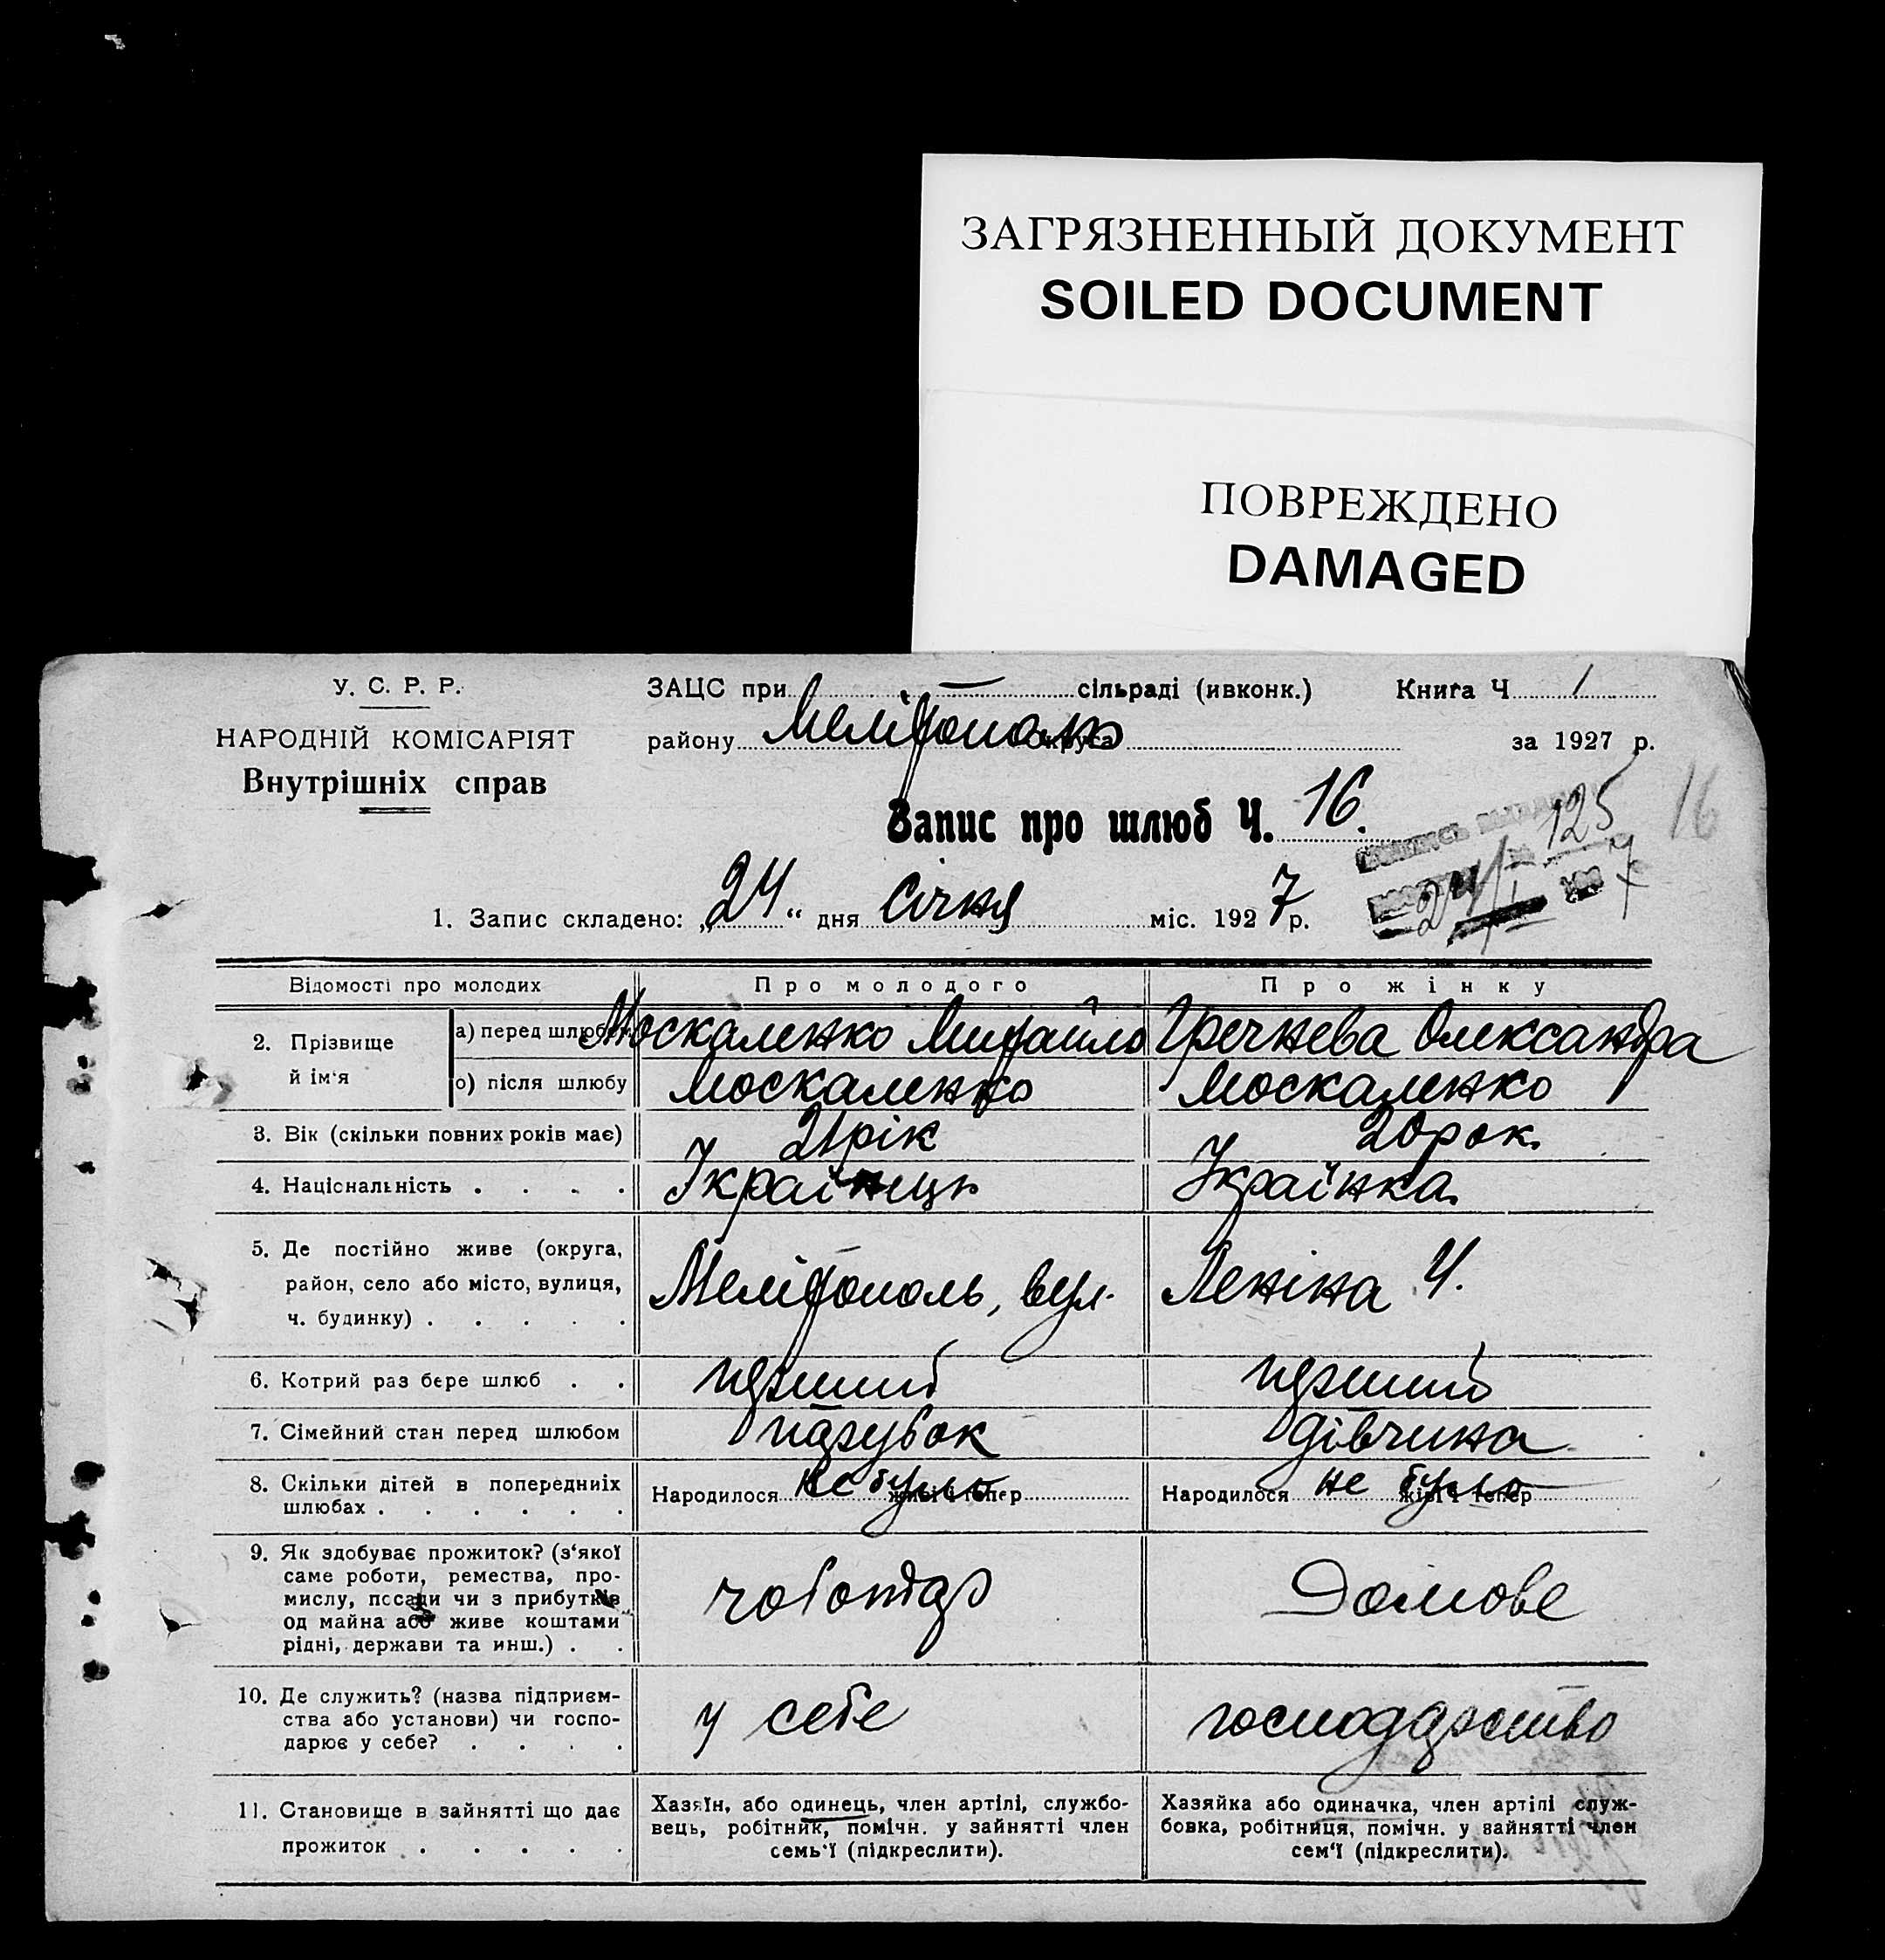 ЗАГРЯЗНЕННЫЙ ДОКУМЕНТ
SOILED DOCUMENT
ПОВРЕЖДЕНО
DAMAGED
У. С. Р. Р.
НАРОДНІЙ КОМІСАРІЯТ
Внутрішніх справ
ЗАЦС при — сільраді (ивконк.) Книга Ч 1
району округа за 1927 р.
Запис про шлюб Ч. 16.
125
16
24/I 7
1. Запис складено: „24“ дня Січня міс. 1927 р.
Відомості про молодих Про молодого Про жінку
2. Прізвище й ім'я а) перед шлюбом Москаленко Михайло Гречнева Олександра
о) після шлюбу Москаленко Москаленко
3. Вік (скільки повних років має) 21 рік 20 рок.
4. Національність . . . . Українець Українка
5. Де постійно живе (округа,
район, село або місто, вулиця,
ч. будинку) . . . . . Мелітополь, вул. Леніна 4.
6. Котрий раз бере шлюб . . перший перший
7. Сімейний стан перед шлюбом парубок дівчина
8. Скільки дітей в попередниіх
шлюбах . . . . . . Народилося не було живі і тепер Народилося не було живі і тепер
9. Як здобуває прожиток? (з'якої
саме роботи, ремества, про-
мислу, посади чи з прибутків
од майна або живе коштами
рідні, держави та инш.) . . чоботар Домове
10. Де служить? (назва підприєм-
ства або установи) чи госпо-
дарює у себе? . . . . у себе господарство
11. Становище в зайнятті що дає
прожиток . . . . .
Хазяїн, або одинець, член артілі, службо-
вець, робітник, помічн. у зайнятті член
семь'ї (підкреслити).
Хазяйка або одиначка, член артілі служ-
бовка, робітниця, помічн. у зайнятті член
сем'ї (підкреслити).